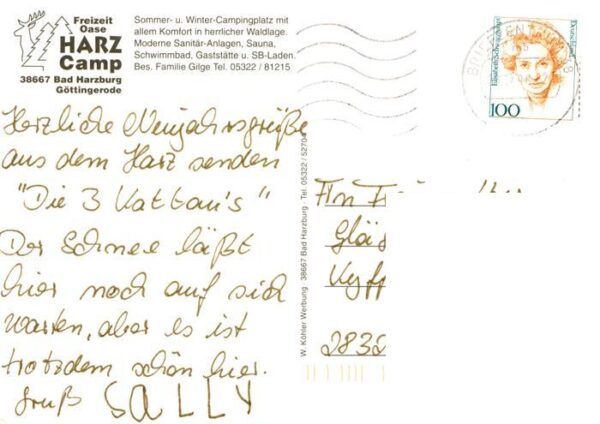 Freizeit
Oase
HARZ
Camp
38667 Bad Harzburg
Göttingerode
Sommer- u. Winter-Campingplatz mit
allem Komfort in herrlicher Waldlage.
Moderne Sanitär-Anlagen, Sauna,
Schwimmbad, Gaststätte u. SB-Laden.
Bes. Familie Gilge Tel. 05322 / 81215
Herzliche Neujahrsgrüße
aus dem Harz senden
"Die 3 Kattau's"
Der Schnee läßt
hier noch auf sich
warten, aber es ist
trotzdem schön hier.
Gruß SALLY
W. Köhler Werbung · 38667 Bad Harzburg · Tel. 05322 / 52704
Deutsche Bundespost
Elisabeth Schwarzhaupt
100
BRIEFZENTRUM 38
2832